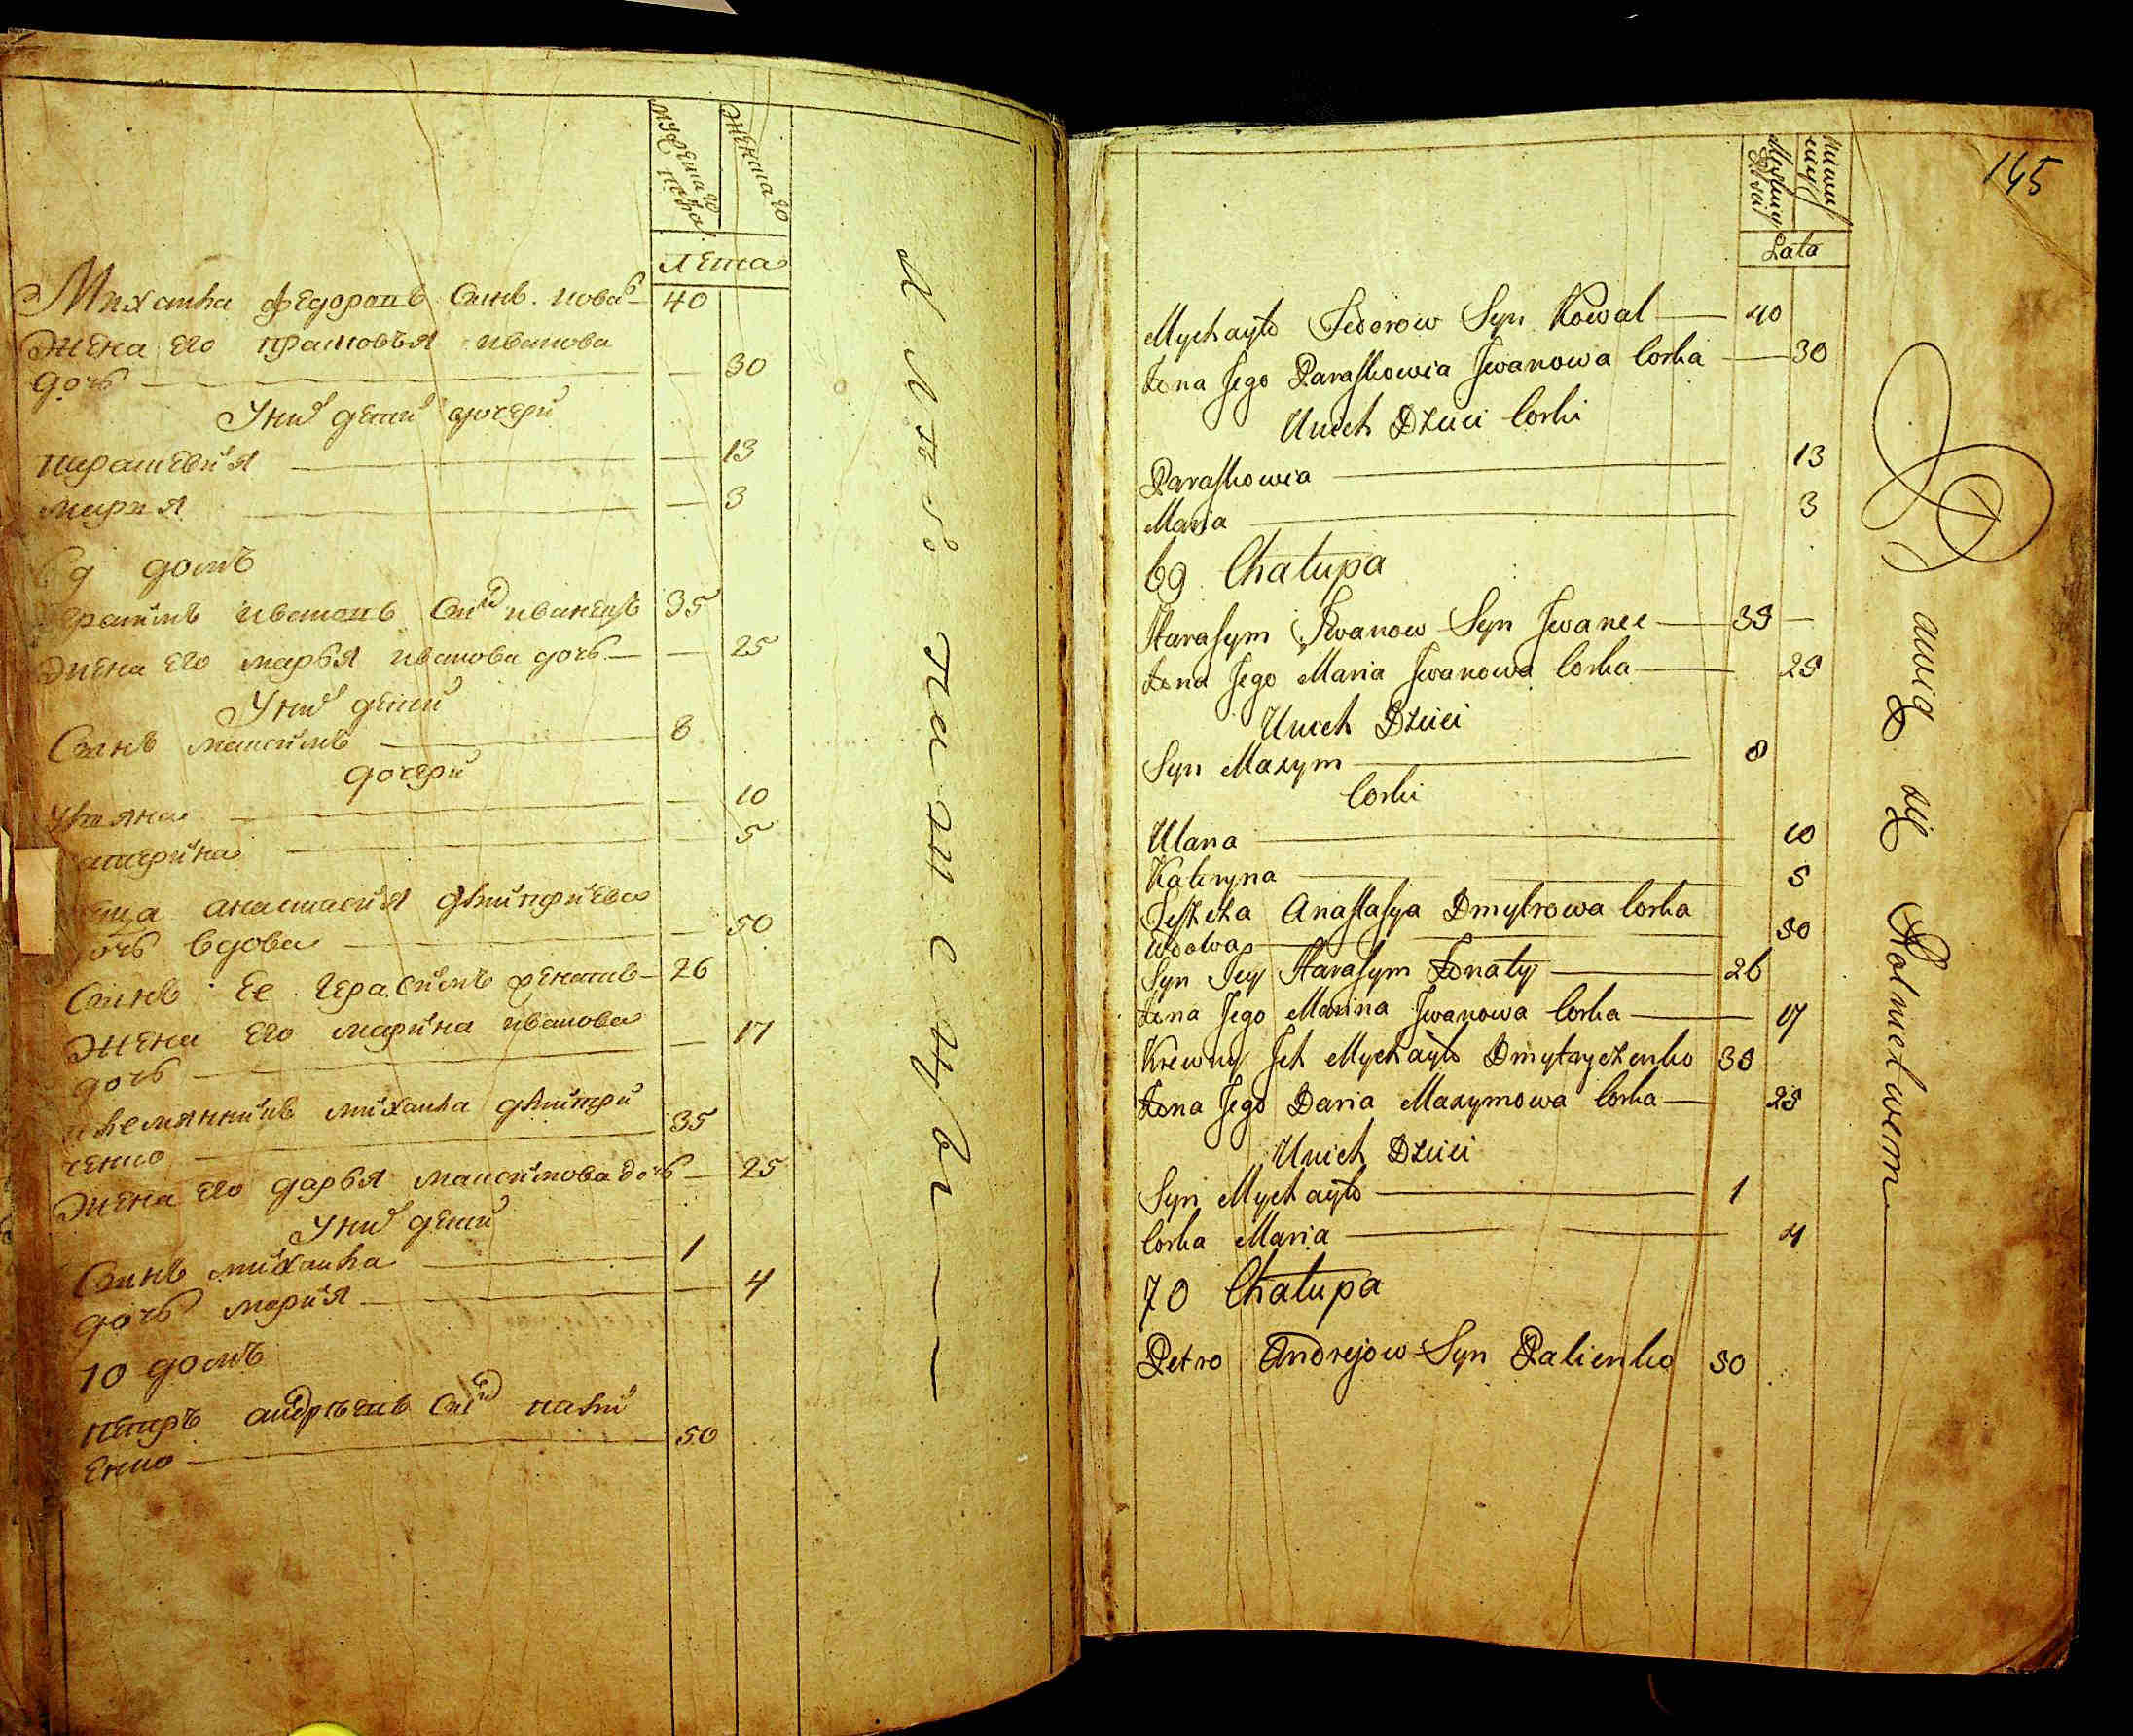 мужеска го пола
женска го
лета
Михаила Федоровъ Синъ Ковал 40
Жена его прасковья иванова
дочь 30
У них дети дочери
параскевия 13
мария 3
69 домъ
Герасимъ ивановъ Син иванецъ 35
Жена его марья иванова дочь 25
У них дети
Синъ максимъ 8
дочери
Улияна 10
катерина 5
анастасия дмитриева
дочь вдова 50
Синъ ее герасимъ 26
Жена его марина иванова
дочь 17
племянникъ михаила дмитри
ченко 35
Жена его дарья максимова дочь 25
У них дети
Синъ михаила 1
дочь мария 4
70 домъ
петръ андреевъ Син пали
енко 50
145
Męskiej Płci
Lata
Mychayło Fedorow Syn Kowal 40
Żona Jego Paraskowia Jwanowa Corka 30
Unich Dzieci Corki
Paraskowia 13
Maria 3
69 Chałupa
Harasym Jwanow Syn Jwanec 35
Żona Jego Maria Jwanowa Corka 25
Unich Dzieci
Syn Maxym 8
Corki
Ulana 10
Kateryna 5
Anastasya Dmytrowa Corka
Wdowa 50
Syn Jey Harasym Żonaty 26
Żona Jego Marina Jwanowa Corka 17
Krewny Jch Mychayło Dmytryczenko 35
Żona Jego Daria Maxymowa Corka 25
Unich Dzieci
Syn Mychayło 1
Corka Maria 4
70 Chałupa
Petro Andrejow Syn Palienko 50
awią się Rolnictwem